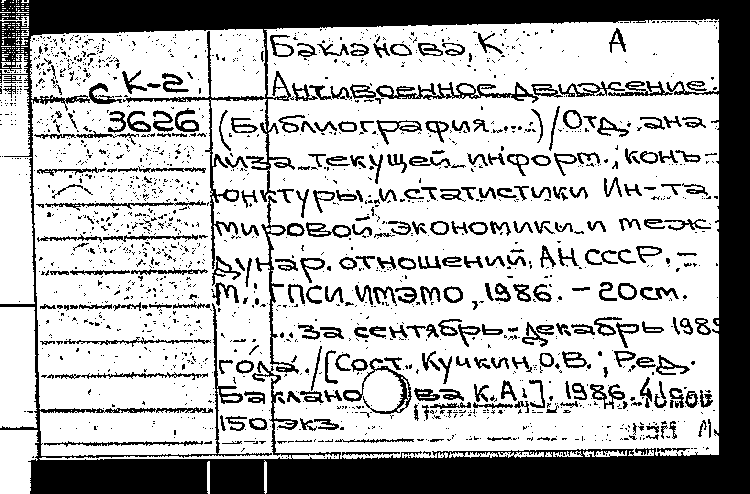 Бакланова, К А
С К-2 Антивоенное движение:
3626 (Библиография....)/Отд. ана-
лиза текущей информ., конъ-
юнктуры и статистики Ин-та
мировой экономики и меж-
дунар. отношений АН СССР. -
М.: ГПСИ ИМЭМО, 1986. - 20см.
...за сентябрь-декабрь 1985
года. /[Сост. Кучкин О.В.; Ред.
Бакланова К.А.]. 1986. 41с.
150 экз.